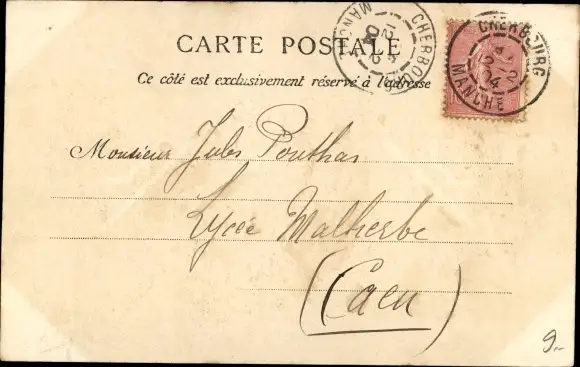 CARTE POSTALE
Ce côté est exclusivement réservé à l'adresse
CHERBOURG
MANCHE
CHERBOURG
MANCHE
Monsieur Jules Pouthas
Lycée Malherbe
(Caen)
9.-